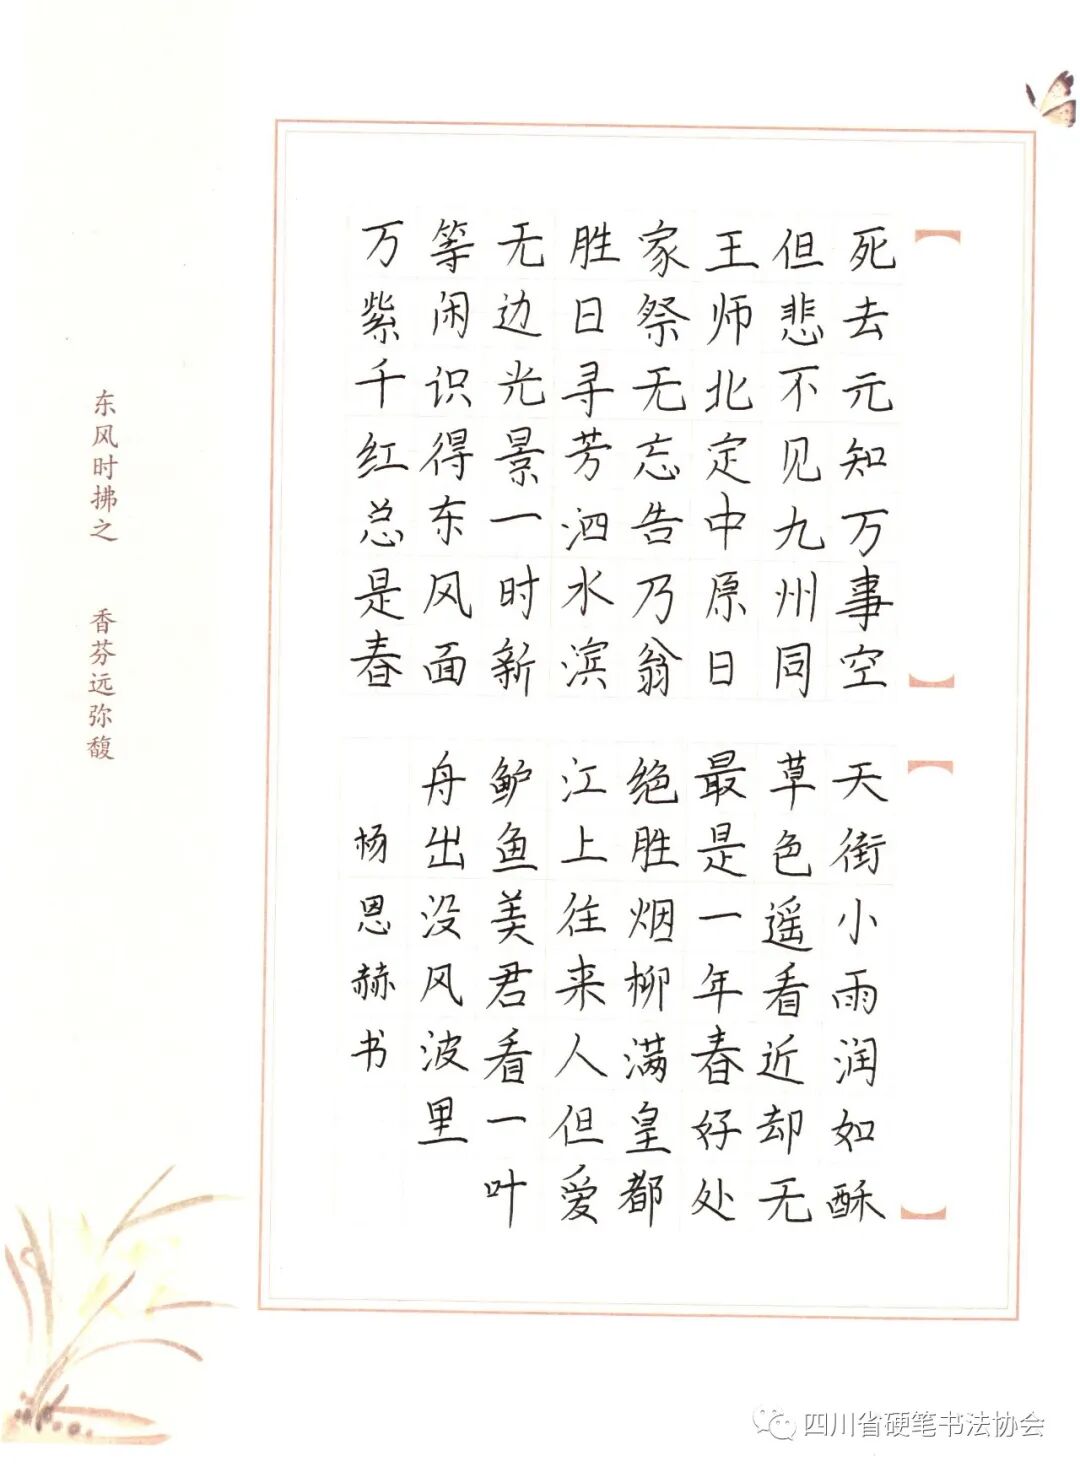 死去元知万事空
但悲不见九州同
王师北定中原日
家祭无忘告乃翁
胜日寻芳泗水滨
无边光景一时新
等闲识得东风面
万紫千红总是春
天街小雨润如酥
草色遥看近却无
最是一年春好处
绝胜烟柳满皇都
江上往来人但爱
鲈鱼美君看一叶
舟出没风波里
杨恩赫书
东风时拂之 香芬远弥馥
四川省硬笔书法协会